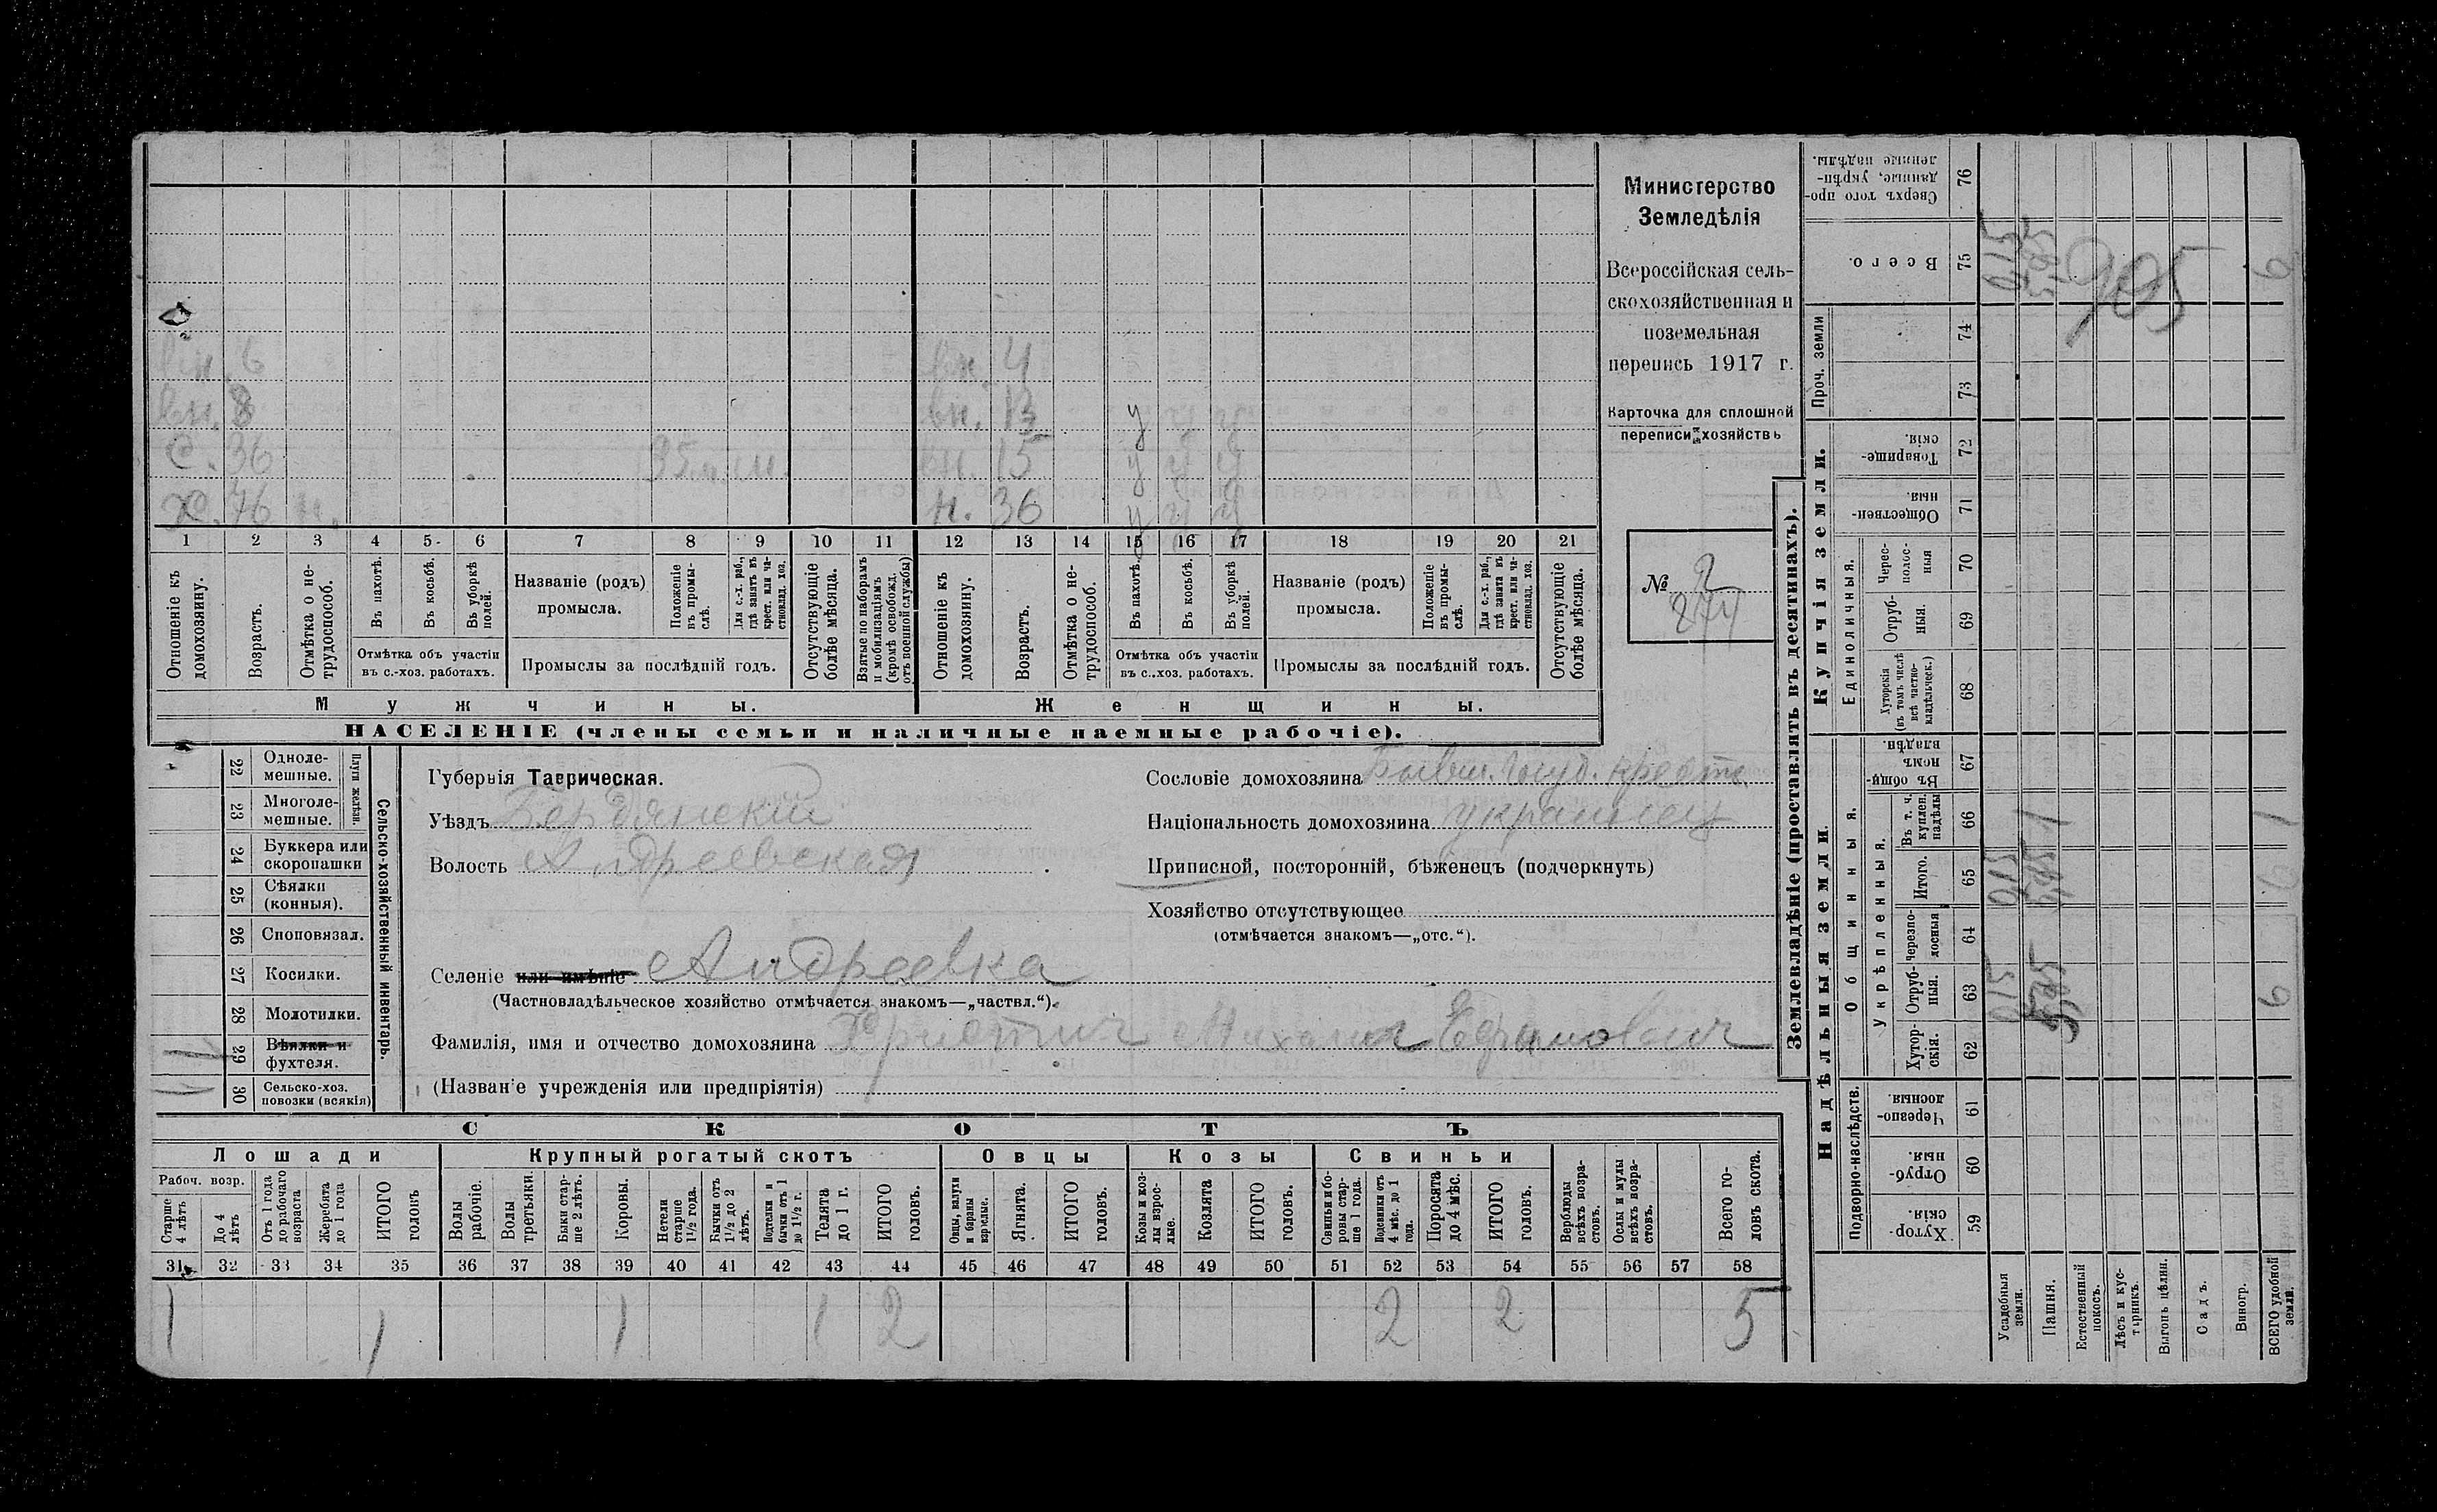 Министерство
Земледѣлія
Всероссійская сель-
скохозяйственная и
поземельная
перепись 1917 г.
Карточка для сплошной
переписи хозяйствъ
№ 2
274
вн. 6
вн. 4
вн. 8
вн. 13 у у у
с. 36
вн. 15 у у у
х. 76 н.
н. 36 у у у
1 2 3 4 5 6 7 8 9 10 11 12 13 14 15 16 17 18 19 20 21
Отношеніе къ домохозяину.
Возрастъ.
Отмѣтка о не-трудоспособ.
Въ пахотѣ.
Въ косьбѣ.
Въ уборкѣ полей.
Отмѣтка объ участіи
въ с.-хоз. работахъ.
Названіе (родъ)
промысла.
Положеніе въ промы-слѣ.
Для с.-х. раб., гдѣ занятъ въ крест. или ча-стновлад. хоз.
Промыслы за послѣдній годъ.
Отсутствующіе болѣе мѣсяца.
Взятые по наборамъ и мобилизаціямъ (кромѣ освобожд. отъ военной службы)
Отношеніе къ домохозяину.
Возрастъ.
Отмѣтка о не-трудоспособ.
Въ пахотѣ.
Въ косьбѣ.
Въ уборкѣ полей.
Отмѣтка объ участіи
въ с.-хоз. работахъ.
Названіе (родъ)
промысла.
Положеніе въ промы-слѣ.
Для с.-х. раб., гдѣ занята въ крест. или ча-стновлад. хоз.
Промыслы за послѣдній годъ.
Отсутствующіе болѣе мѣсяца.
Мужчины.
Женщины.
НАСЕЛЕНІЕ (члены семьи и наличные наемные рабочіе).
Сельско-хозяйственный инвентарь.
Плуги желѣзн.
22 Одноле-мешные.
23 Многоле-мешные.
24 Буккера или скоропашки
25 Сѣялки (конныя).
26 Споповязал.
27 Косилки.
28 Молотилки.
29 Вѣялки и фухтеля.
30 Сельско-хоз. повозки (всякія)
Губернія Таврическая.
Уѣздъ Бердянскій
Волость Андреевская
Селеніе или имѣніе Андреевка
(Частновладѣльческое хозяйство отмѣчается знакомъ—„частвл.“).
Фамилія, имя и отчество домохозяина Христич Михаил Ефимович
(Названіе учрежденія или предпріятія)
Сословіе домохозяина Бывш. госуд. крест.
Національность домохозяина украинец
Приписной, посторонній, бѣженецъ (подчеркнуть)
Хозяйство отсутствующее
(отмѣчается знакомъ—„отс.“).
СКОТЪ
Лошади
Крупный рогатый скотъ
Овцы
Козы
Свиньи
Рабоч. возр.
Старше 4 лѣтъ
До 4 лѣтъ
Отъ 1 года до рабочаго возраста
Жеребята до 1 года
ИТОГО головъ
Волы рабочіе.
Волы третьяки.
Быки стар-ше 2 лѣтъ.
Коровы.
Нетели старше 1½ года.
Бычки отъ 1½ до 2 лѣтъ.
Подтелки и бычки отъ 1 до 1½ г.
Телята до 1 г.
ИТОГО головъ.
Овцы, валухи и бараны взрослые.
Ягнята.
ИТОГО головъ.
Козы и коз-лы взрос-лые.
Козлята
ИТОГО головъ.
Свиньи и бо-ровы стар-ше 1 года.
Подсвинки отъ 4 мѣс. до 1 года.
Поросята до 4 мѣс.
ИТОГО головъ.
Верблюды всѣхъ возра-стовъ.
Ослы и мулы всѣхъ возра-стовъ.
Всего го-ловъ скота.
31 32 33 34 35 36 37 38 39 40 41 42 43 44 45 46 47 48 49 50 51 52 53 54 55 56 57 58
1 1 1 1 2 2 2 5
Землевладѣніе (проставлять въ десятинахъ).
Надѣльныя земли.
Купчія земли.
Проч. земли
Подворно-наслѣдств.
Общинныя.
Укрѣпленныя.
Единоличныя.
Сверхъ того про-данные, укрѣп-ленные надѣлы. 76
Всего. 75
74
73
Товарище-скія. 72
Обществен-ныя. 71
Черес-полос-ныя 70
Отруб-ныя. 69
Хуторскія (въ томъ числѣ всѣ частно-владѣльческ.) 68
Въ общин-номъ владѣн. 67
Въ т. ч. куплен. надѣлы 66
Итого. 65
Черезпо-лосныя 64
Отруб-ныя. 63
Хутор-скія. 62
Черезпо-лосныя. 61
Отруб-ныя. 60
Хутор-скія. 59
Усадебныя земли.
Пашня.
Естественный покосъ.
Лѣсъ и кус-тарникъ.
Выгонъ цѣлин.
Садъ.
Виногр.
ВСЕГО удобной земли.
015
585
905
6